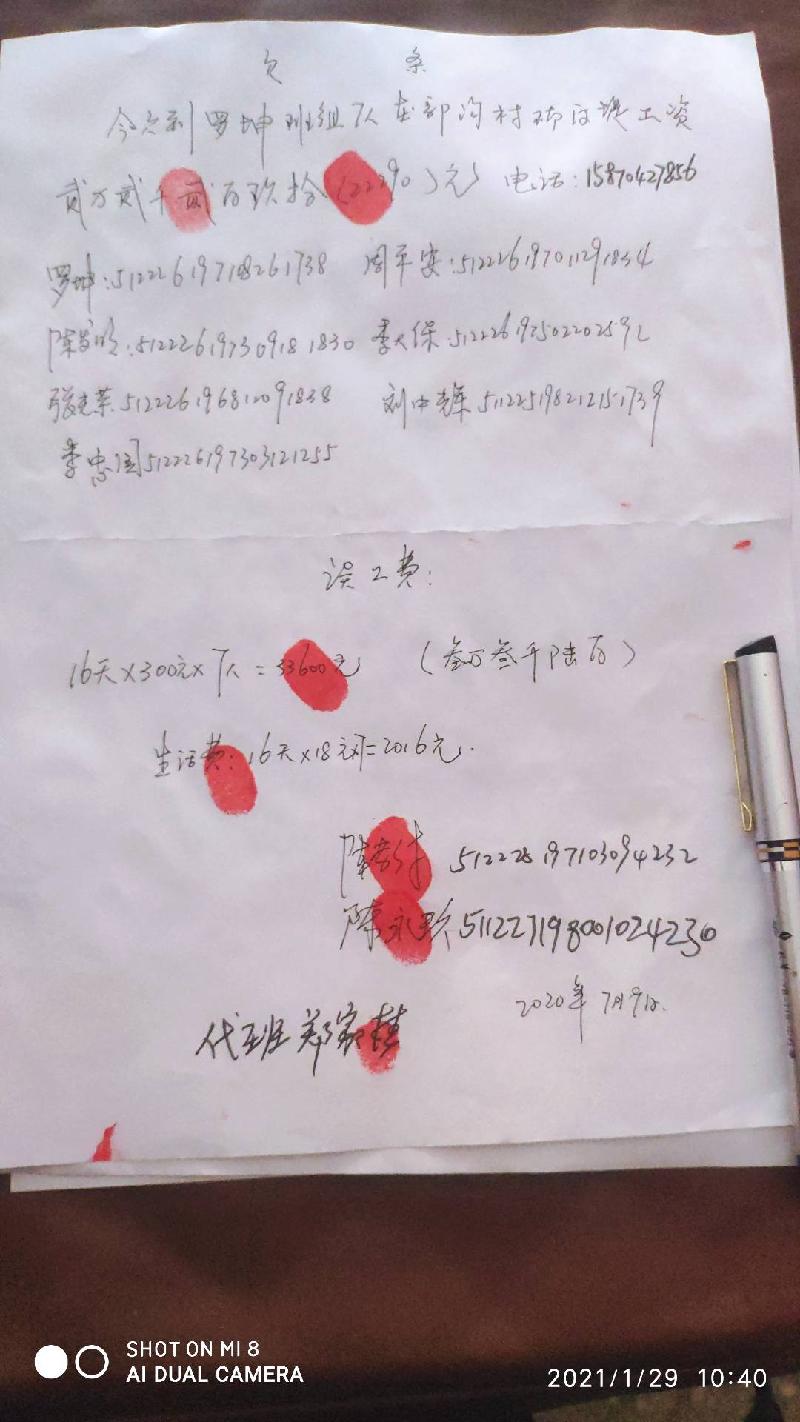 欠 条
今欠到罗坤班组7人在部沟村砌 工资
贰万贰千贰百玖拾(22290)元 电话:15870427856
罗坤:512226197108261738 周平安:512226197011291834
陈 明:512226197309181830 李大保:51222619750220259
张 荣:512226196812091838 刘中 511225198212151739
李忠国512226197303121255
误工费:
16天×300元×7人=33600元 (叁万叁千陆百)
生活费:16天×18元 7=2016元.
陈 51222 197103094232
陈永 511227198001024230
2020年7月9日.
代班郑家
SHOT ON MI 8
AI DUAL CAMERA
2021/1/29 10:40